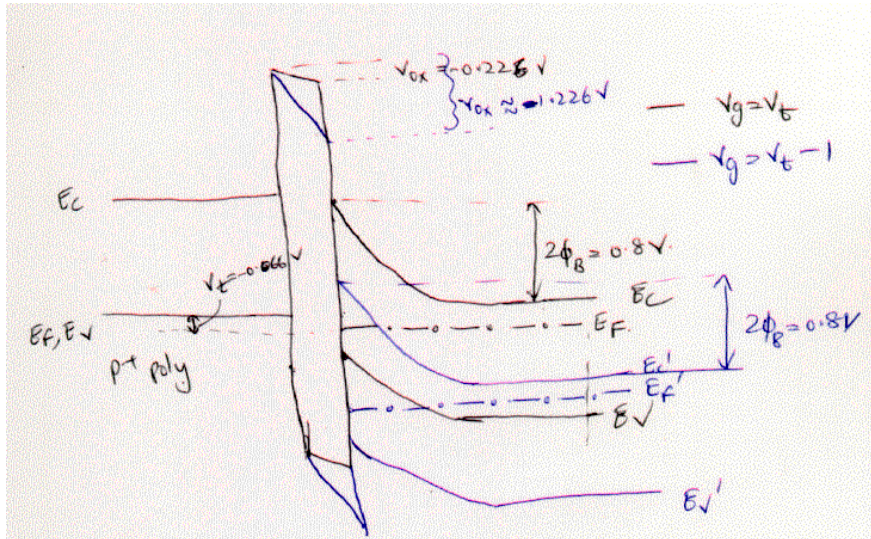 Vox = -0.226 V
Vox ≈ -1.226V
Vg = Vt
Vg = Vt - 1
Ec
2ϕB = 0.8 V.
Vt = -0.066 V
Ec
EF
2ϕB = 0.8V
Ef, Ev
p+ poly
Ec'
EF'
Ev
Ev'